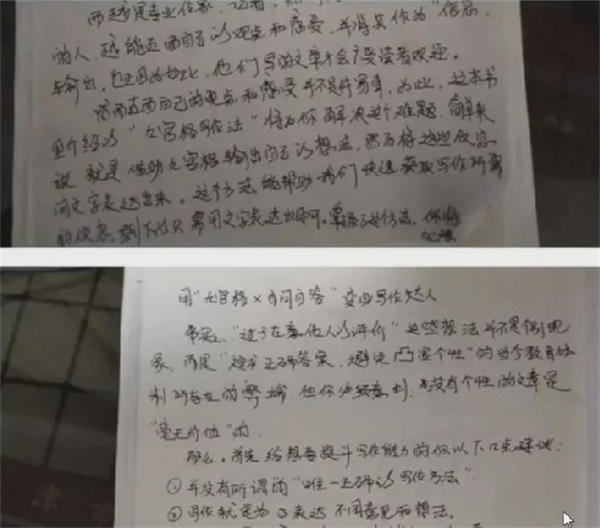 而越是专业作家、记者,
的人,越能直面自己的观点和感受,并将其作为“信息
与输出,也正因为如此,他们写的文章才会广受读者欢迎。
然而直面自己的观点和感受并不是件易事,为此,这本书
里介绍的“九宫格写作法”将为你解决这个难题,简单来
说,就是借助九宫格输出自己的想法,然后将这些信息
用文字表达出来。这个方法能帮助我们快速获取写作所需
的信息,剩下的只需用文字表达出即可。掌握了这个方法,你将
用“九宫格×自问自答”变身写作达人
事实上,“过于在意他人的评价”这些想法并不是个别现
象,而是“搜求正确答案,避免凸显个性”的当今教育体
制所存在的弊端,但你必须意识到,没有个性的文章是
“毫无价值”的。
那么,首先给想要提升写作能力的你以下几点建议:
①并没有所谓的“唯一正确的写作方法”
②写作就是为了表达不同意见和想法。